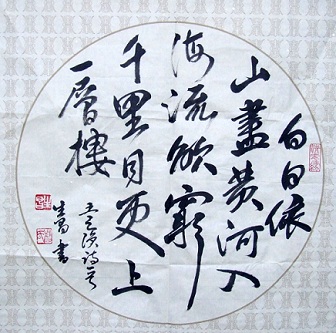 白日依
山盡黄河入
海流欲窮
千里目更上
一層樓
王之渙詩
生書